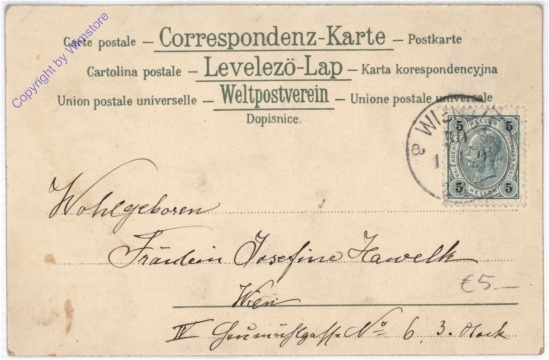 Carte postale – Correspondenz-Karte – Postkarte
Cartolina postale – Levelező-Lap – Karta korespondencyjna
Union postale universelle – Weltpostverein – Unione postale universale
Dopisnice.
Copyright by Wamstore
a WIEN
5 5
5 5
Wohlgeboren
Fräulein Josefine Hawelk
€5.—
Wien
IV Heumühlgasse No 6 3. Stock